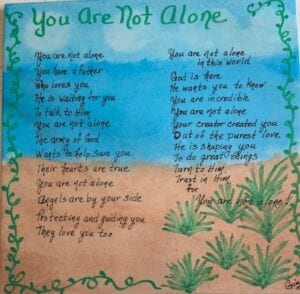 You Are Not Alone
You are not alone
You have a father
Who loves you
He is waiting for you
To talk to Him
You are not alone
The army of God
Wants to help save you
Their hearts are true
You are not alone
Angels are by your side
Protecting and guiding you
They love you too
You are not alone
in this world
God is here
He wants you to know
You are incredible
You are not alone
Your creator created you
Out of the purest love
He is shaping you
To do great things
Turn to Him
Trust in Him
for
You are not alone!